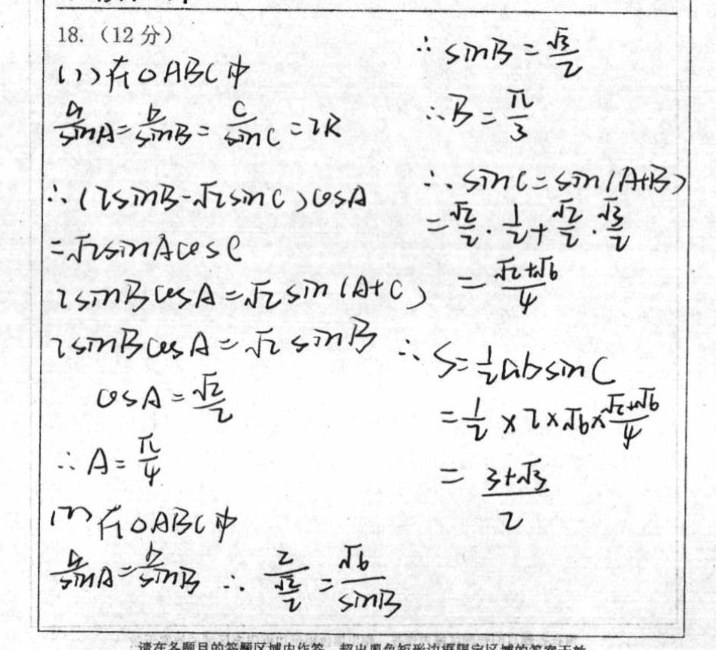 18. (12 分)
(1) 在△ABC中
a/sinA = b/sinB = c/sinC = 2R
∴ (2sinB-√2sinC)cosA
=√2sinAcosC
2sinBcosA=√2sin(A+C)
2sinBcosA=√2sinB
cosA=√2/2
∴A=π/4
(2) 在△ABC中
a/sinA = b/sinB ∴ 2/(√2/2) = √6/sinB
∴ sinB=√3/2
∴B=π/3
∴ sinC=sin(A+B)
=√2/2·1/2+√2/2·√3/2
=(√2+√6)/4
∴ S=1/2absinC
=1/2×2×√6×(√2+√6)/4
=(3+√3)/2
请在各题目的答题区域内作答,超出黑色矩形边框限定区域的答案无效